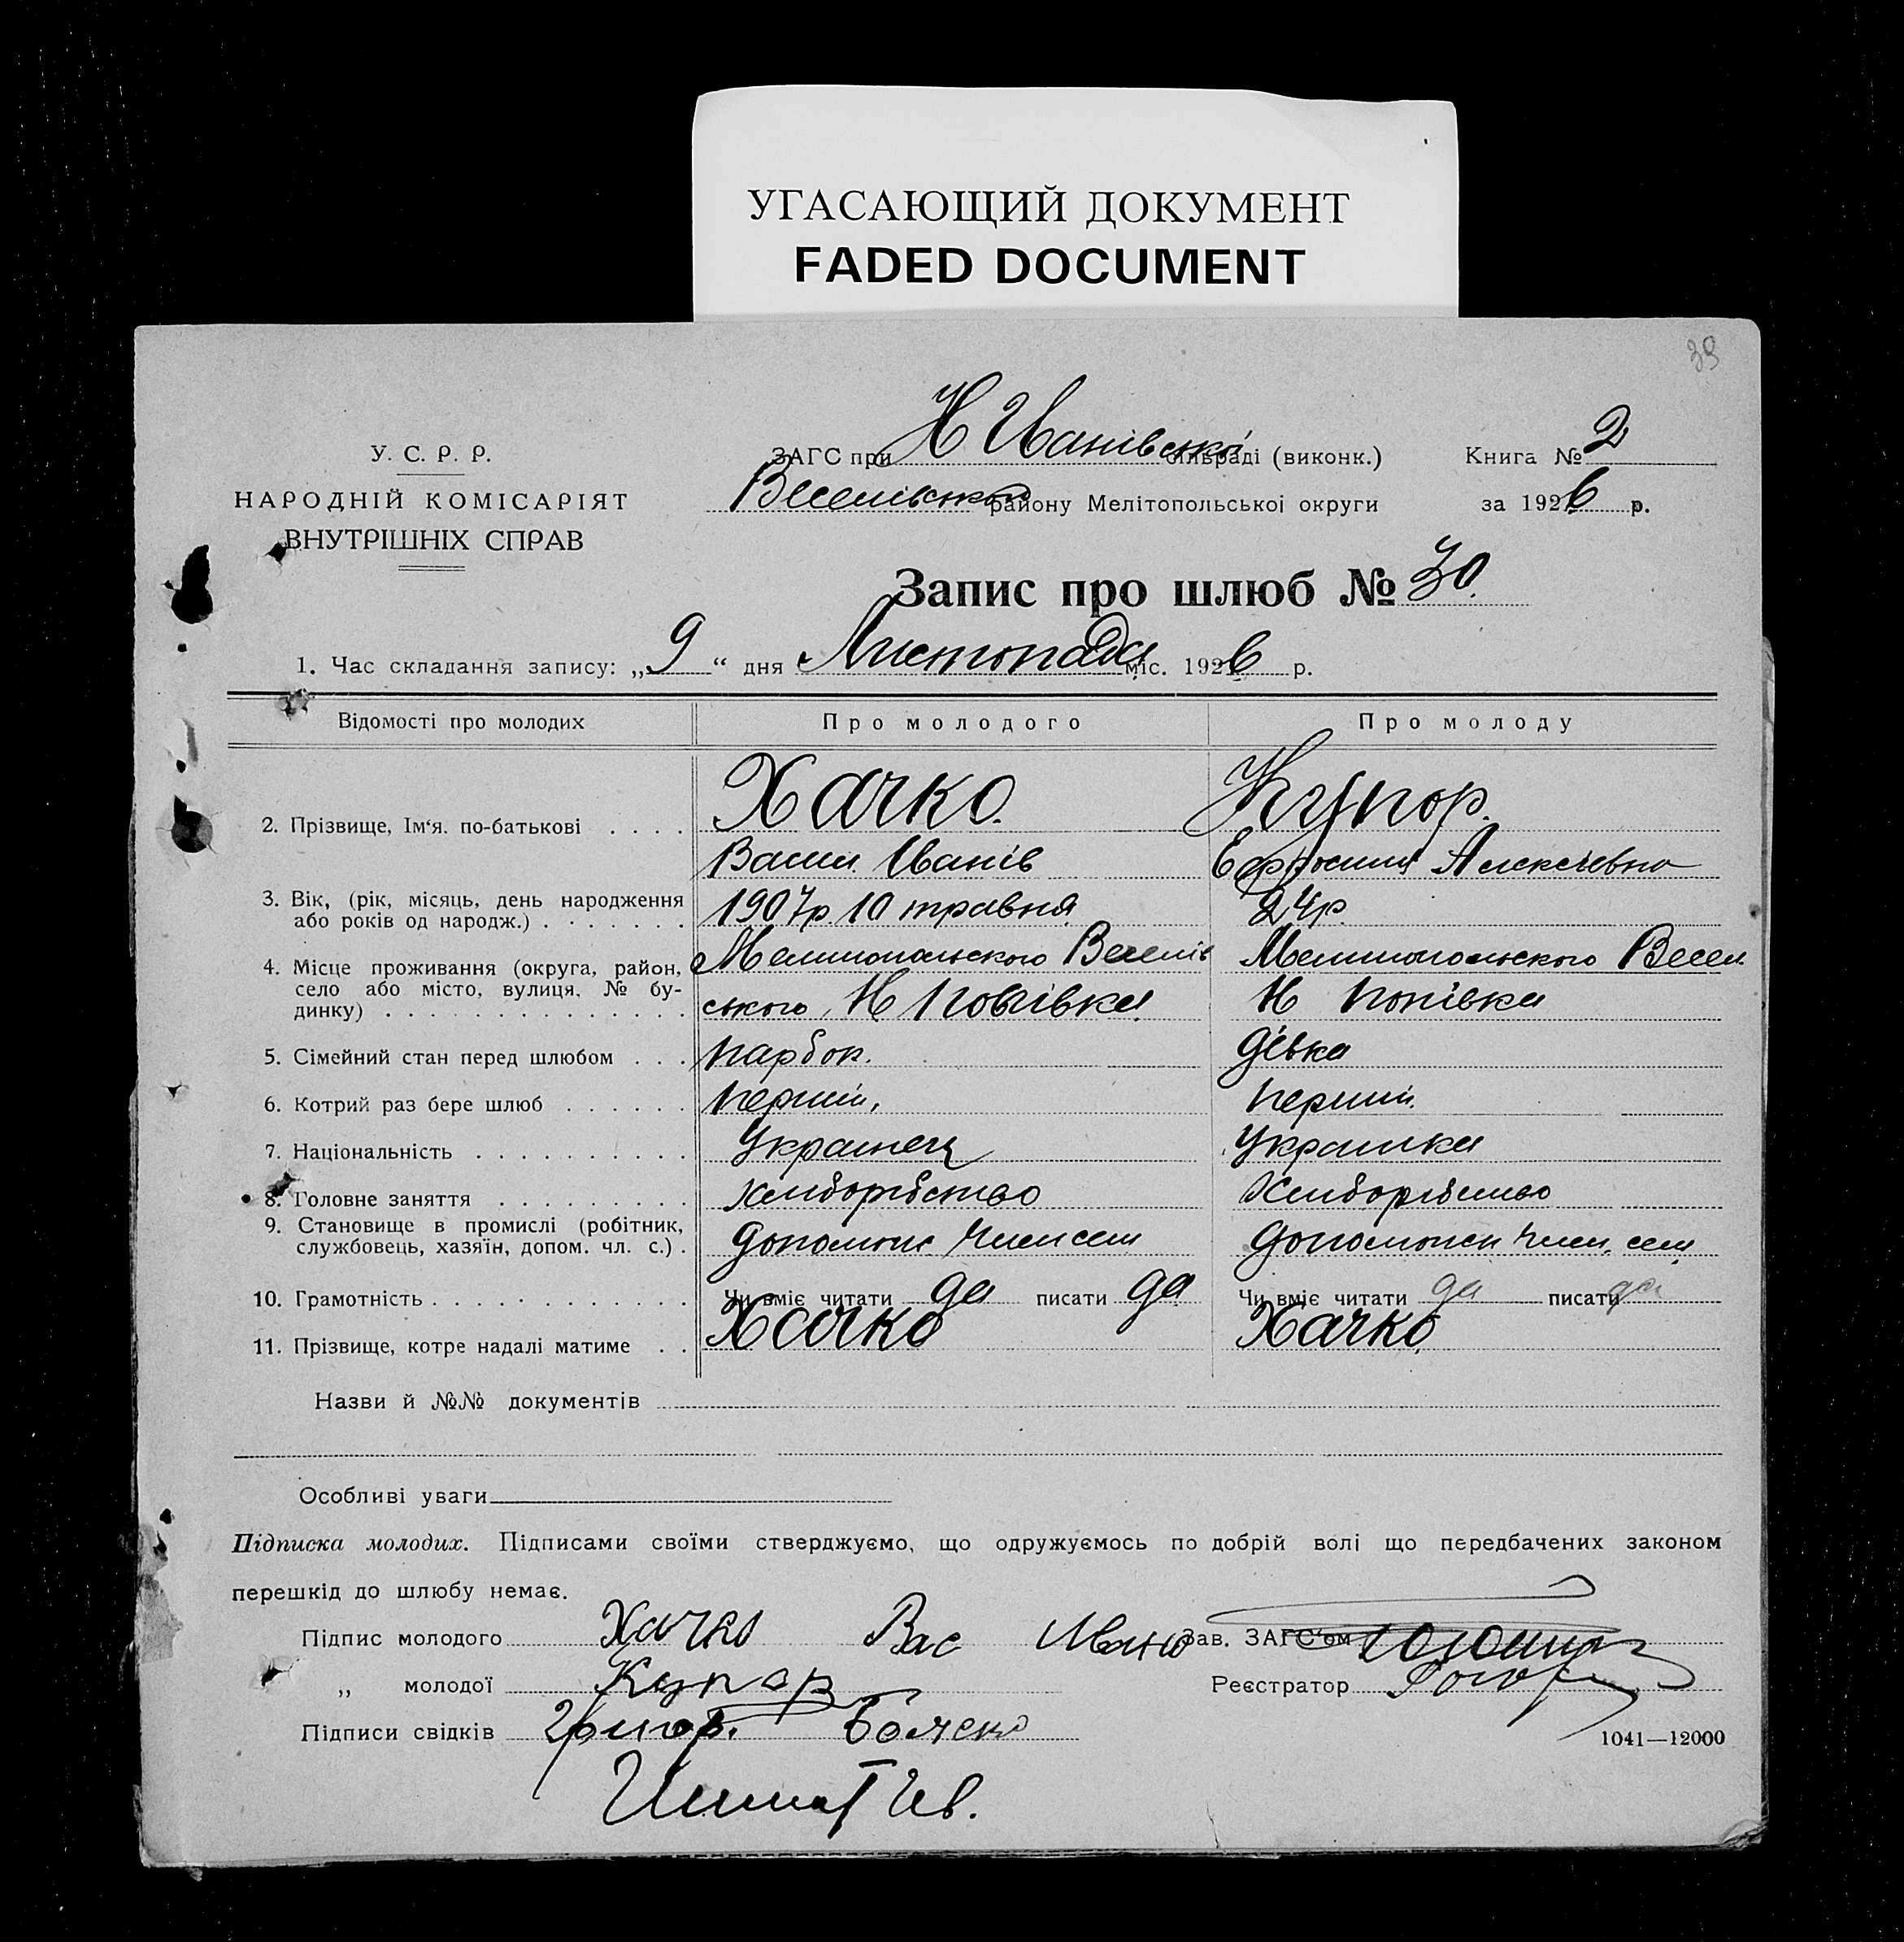 УГАСАЮЩИЙ ДОКУМЕНТ
FADED DOCUMENT
39
У. С. Р. Р.
НАРОДНІЙ КОМІСАРІЯТ
ВНУТРІШНІХ СПРАВ
ЗАГС при Н Иванівській сільраді (виконк.)
Веселівського району Мелітопольської округи
Книга № 2
за 1926 р.
Запис про шлюб № 30.
1. Час складання запису: „9“ дня Листопада міс. 1926 р.
Відомості про молодих Про молодого Про молоду
2. Прізвище, Ім‘я. по-батькові . . . . Хачко. Купор.
Васил. Иванів Ефросиния Алексіевна
3. Вік, (рік, місяць, день народження
або років од народж.) . . . . . . . 1907р. 10 травня 24р.
4. Місце проживання (округа, район, Мелитопольского Веселів Мелитопольского Весел
село або місто, вулиця, № бу-
динку) . . . . . . . . . . . . . . ського, Н Попівка Н Попівка
5. Сімейний стан перед шлюбом . . . парбок. дівка
6. Котрий раз бере шлюб . . . . . . перший, перший.
7. Національність . . . . . . . . . . Украинец Украинка
8. Головне заняття . . . . . . . . . хлиборібство Хлиборібство
9. Становище в промислі (робітник,
службовець, хазяїн, допом. чл. с.) . член сем член. сем
10. Грамотність . . . . . . . . . . . . Чи вміє читати да писати да Чи вміє читати да писати да
11. Прізвище, котре надалі матиме . . Хачко Хачко
Назви й №№ документів
Особливі уваги
Підписка молодих. Підписами своїми стверджуємо, що одружуємось по добрій волі що передбачених законом
перешкід до шлюбу немає.
Підпис молодого Хачко Вас Ивано
Зав. ЗАГС‘ом
„ молодої Купор
Реєстратор
Підписи свідків Григор.
1041—12000
Ив.